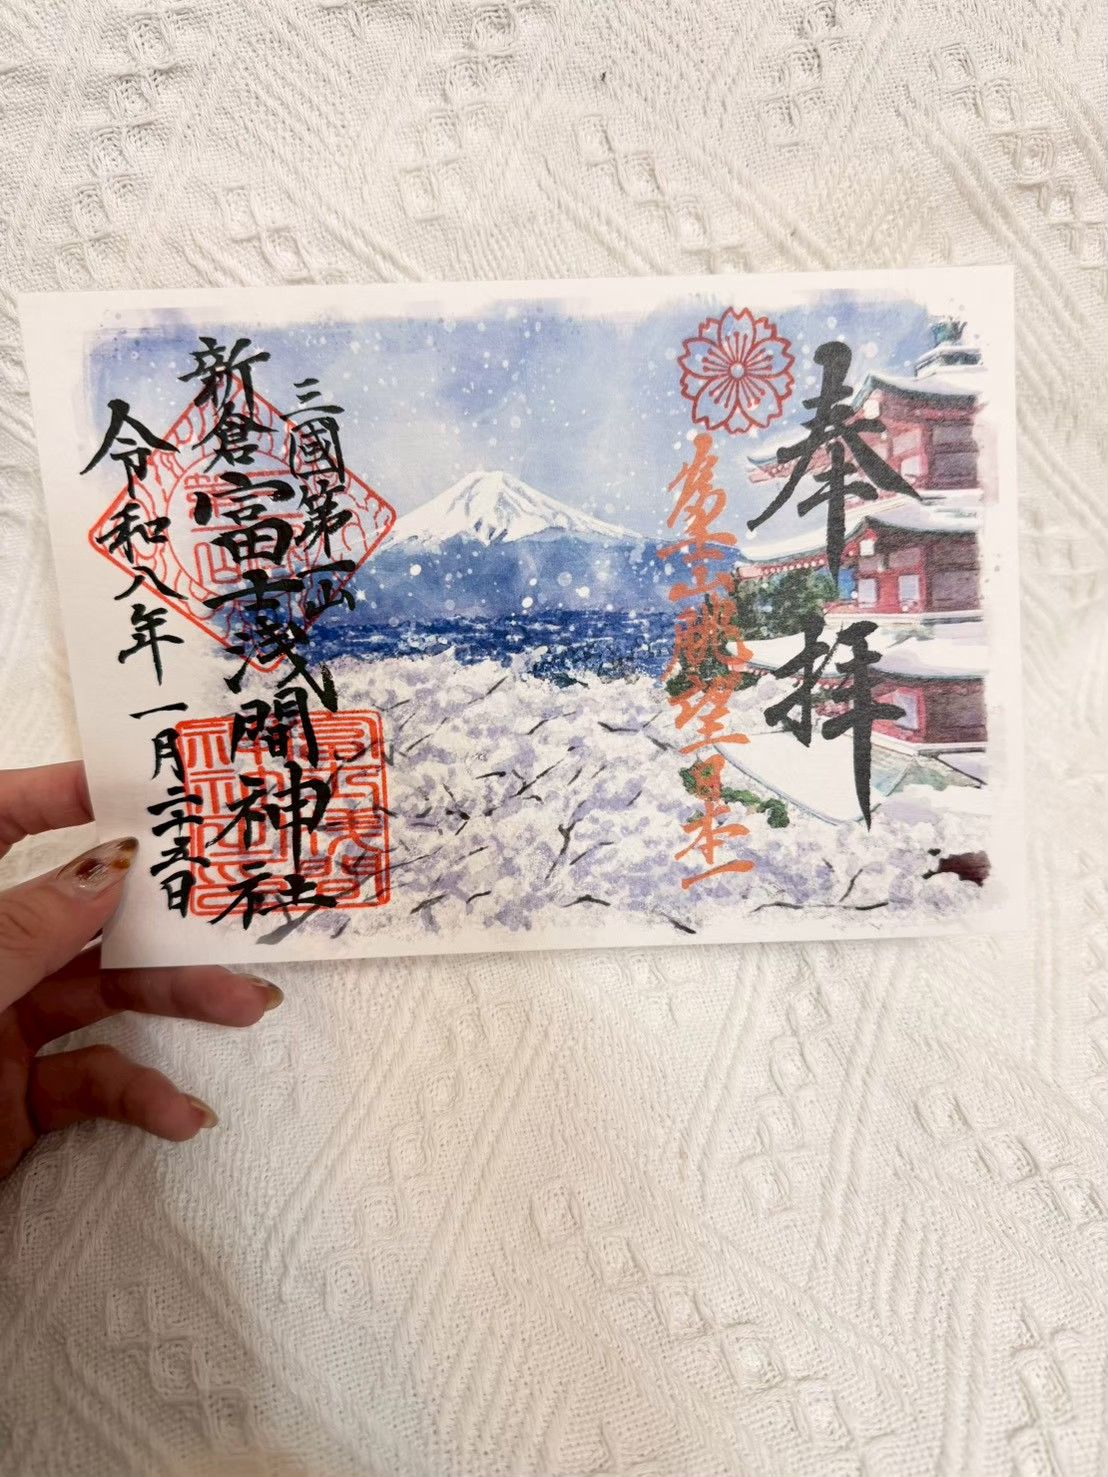 奉拝
富士山眺望日本一
三國第一山
新倉富士浅間神社
令和八年一月二十五日